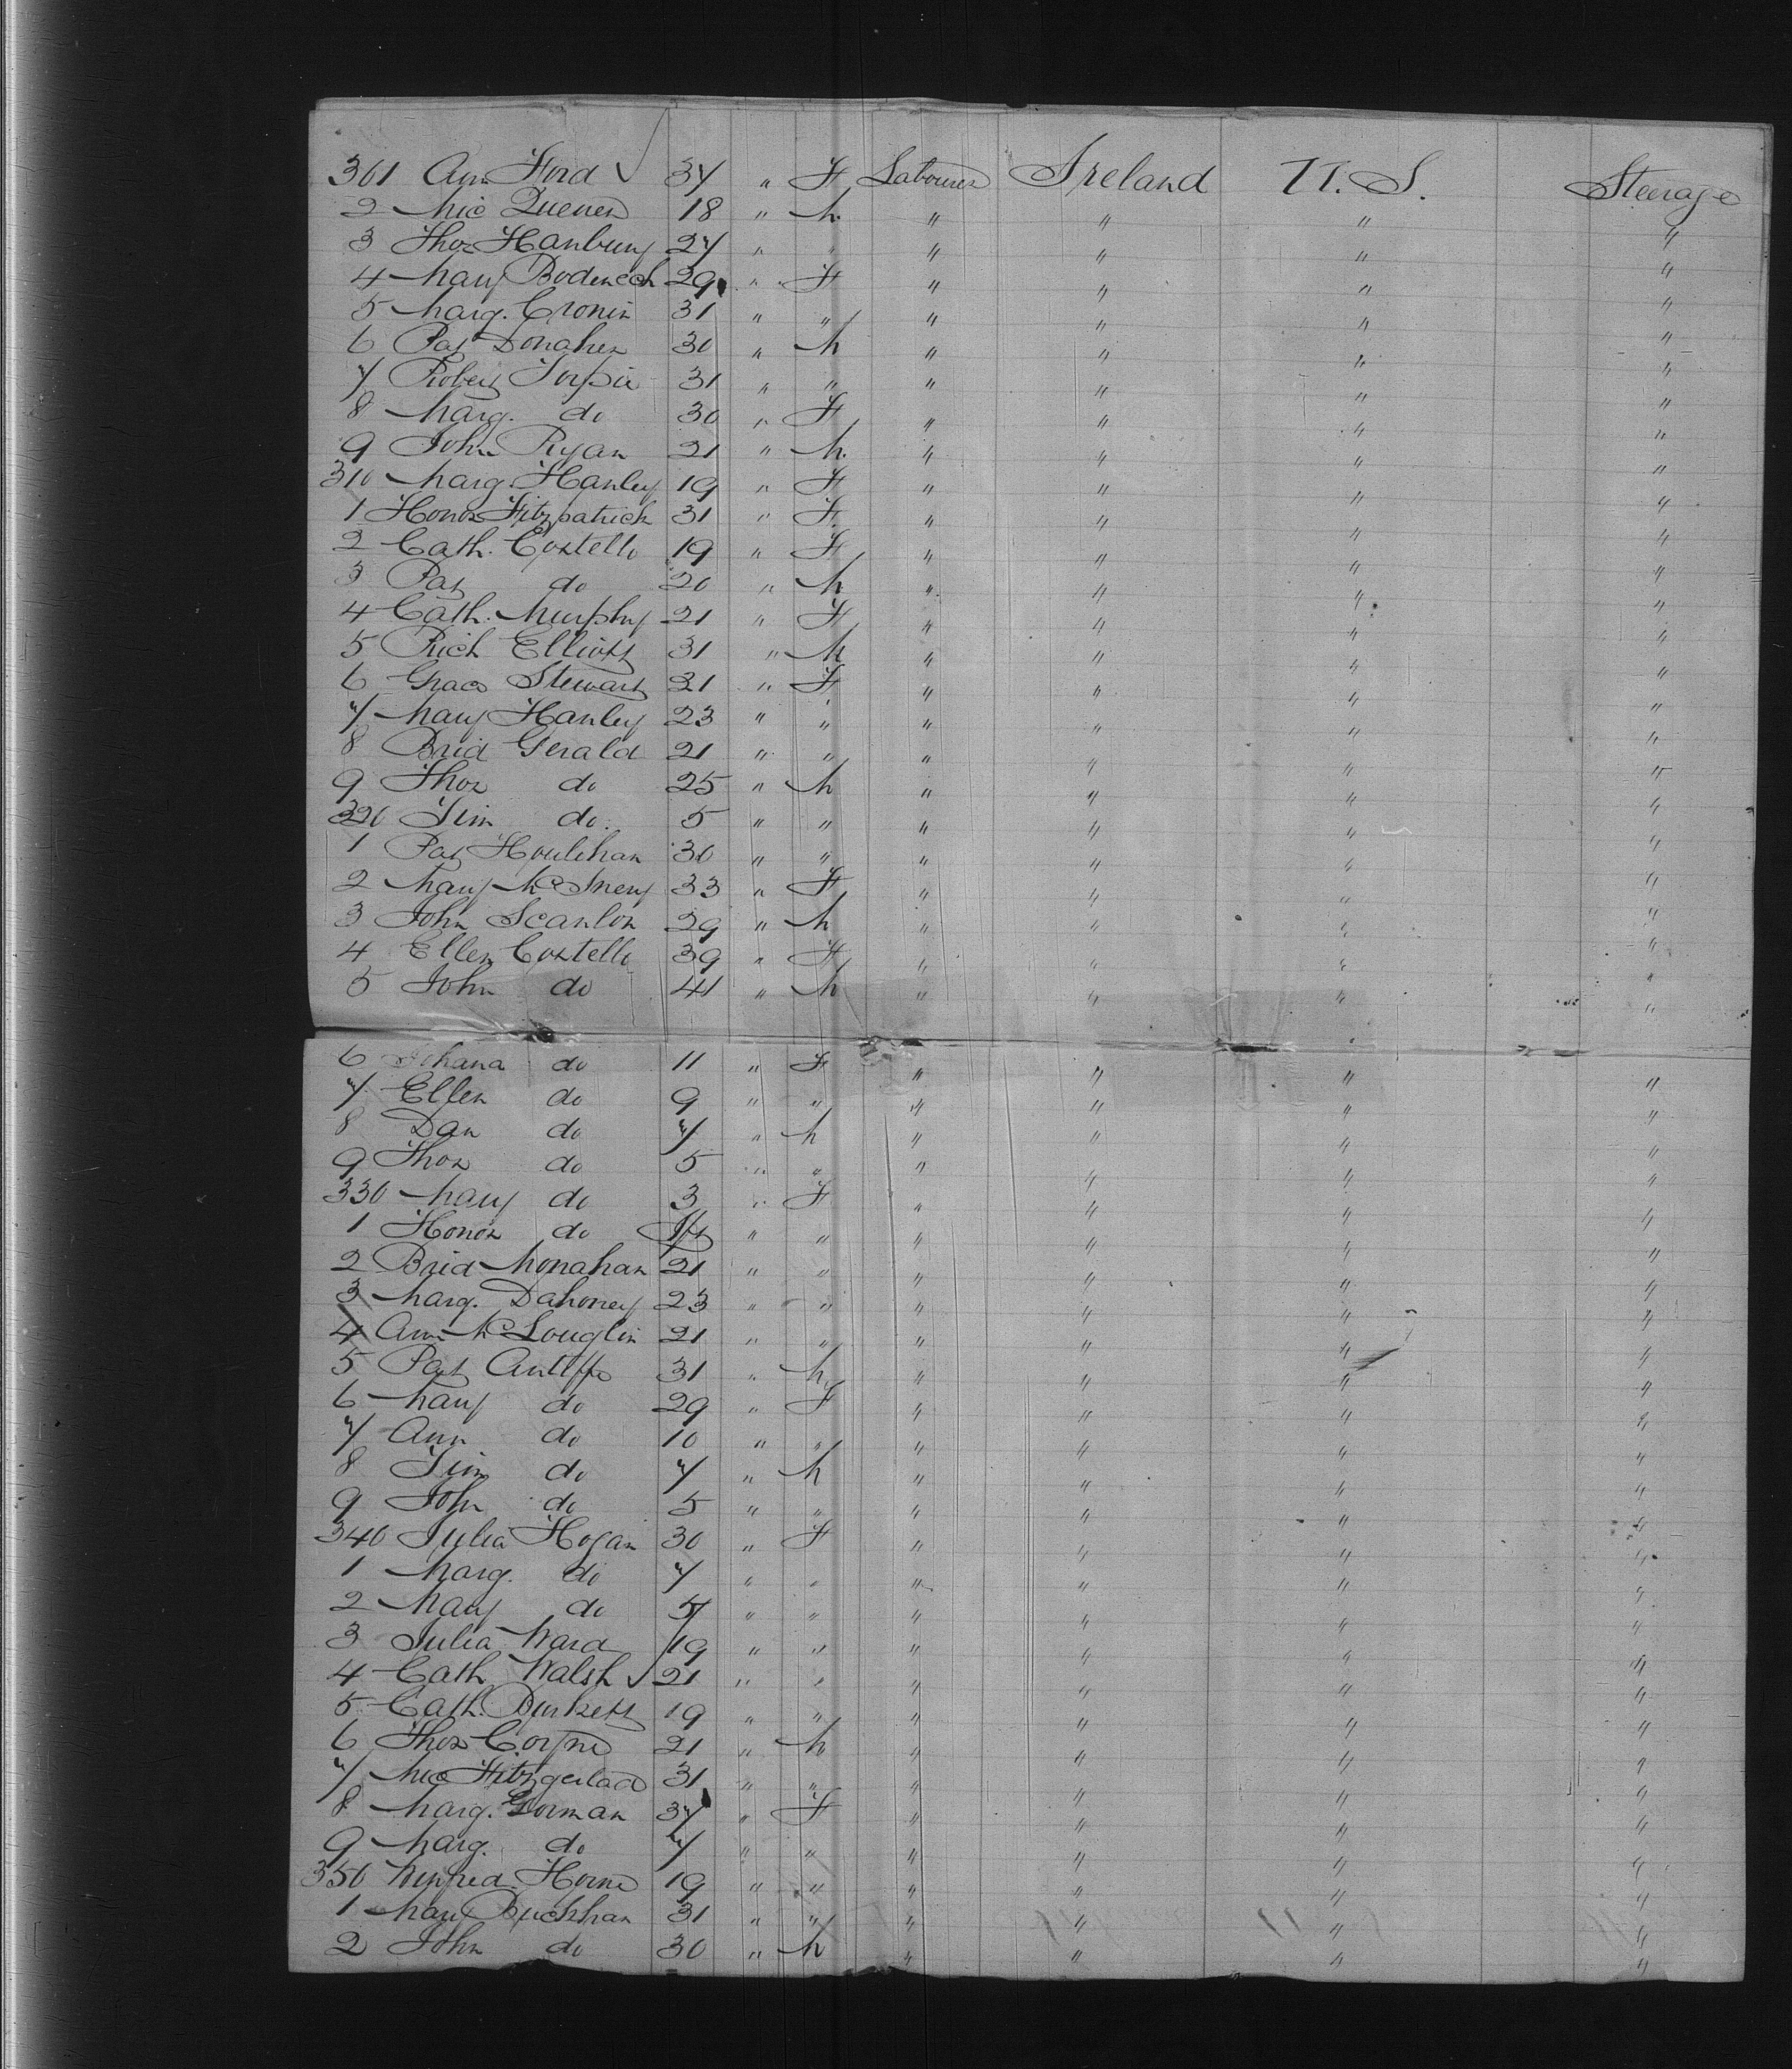 301 Ann Ford ✓ 37 " F Labourer Ireland U.S. Steerage
2 Mic Quener 18 " M. " " " "
3 Thos Hanbury 27 " " " " " "
4 Mary 29 " F " " " "
5 Marg. Cronin 31 " " " " " "
6 Pat Donaher 30 " M " " " "
7 Robert 31 " " " " " "
8 Marg. do 30 " F " " " "
9 John Ryan 21 " M. " " " "
310 Marg. Hanley 19 " F " " " "
1 Honor Fitzpatrick 31 " F. " " " "
2 Cath. Costello 19 " F " " " "
3 Pat do 20 " M " " " "
4 Cath. Murphy 21 " F " " " "
5 Rich Elliott 31 " M " " " "
6 Grace Stewart 21 " F " " " "
7 Mary Hanley 23 " " " " " "
8 Brid Gerald 21 " " " " " "
9 Thos do 25 " M " " " "
320 Jim do. 5 " " " " " "
1 Pat Houlihan 30 " " " " " "
2 Mary McInery 33 " F " " " "
3 John Scanlon 29 " M " " " "
4 Ellen Costello 39 " F " " " "
5 John do 41 " M " " " "
6 Johana do 11 " F " " " "
7 Ellen do 9 " " " " " "
8 Dan do 7 " M " " " "
9 Thos do 5 " " " " " "
330 Mary do 3 " F " " " "
1 Honor do Inft " " " " " "
2 Brid Monahan 21 " " " " " "
3 Marg. Dahoney 23 " " " " " "
4 Ann McLouglin 21 " " " " " "
5 Pat 31 " M " " " "
6 Mary do 29 " F " " " "
7 Ann do 10 " " " " " "
8 Jim do 7 " M " " " "
9 John do 5 " " " " " "
340 Julia Hogan 30 " F " " " "
1 Marg. do 7 " " " " " "
2 Mary do 5 " " " " " "
3 Julia Ward 19 " " " " " "
4 Cath Walsh ✓ 21 " " " " " "
5 Cath. Burkett 19 " " " " " "
6 Thos Coyne 21 " M " " " "
7 Mic Fitzgerlad 31 " " " " " "
8 Marg. Gorman 37 " F " " " "
9 Marg. do 7 " " " " " "
350 Winfred Horne 19 " " " " " "
1 Mary Buckhan 31 " " " " " "
2 John do 30 " M " " " "